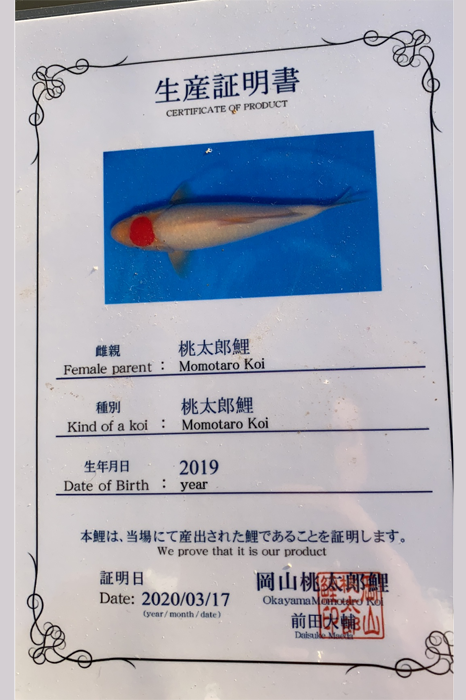 生産証明書
CERTIFICATE OF PRODUCT
雌親 桃太郎鯉
Female parent : Momotaro Koi
種別 桃太郎鯉
Kind of a koi : Momotaro Koi
生年月日 2019
Date of Birth : year
本鯉は、当場にて産出された鯉であることを証明します。
We prove that it is our product
証明日 岡山桃太郎鯉
Date: 2020/03/17 Okayama Momotaro Koi
(year/month/date) 前田大輔
Daisuke Maeda